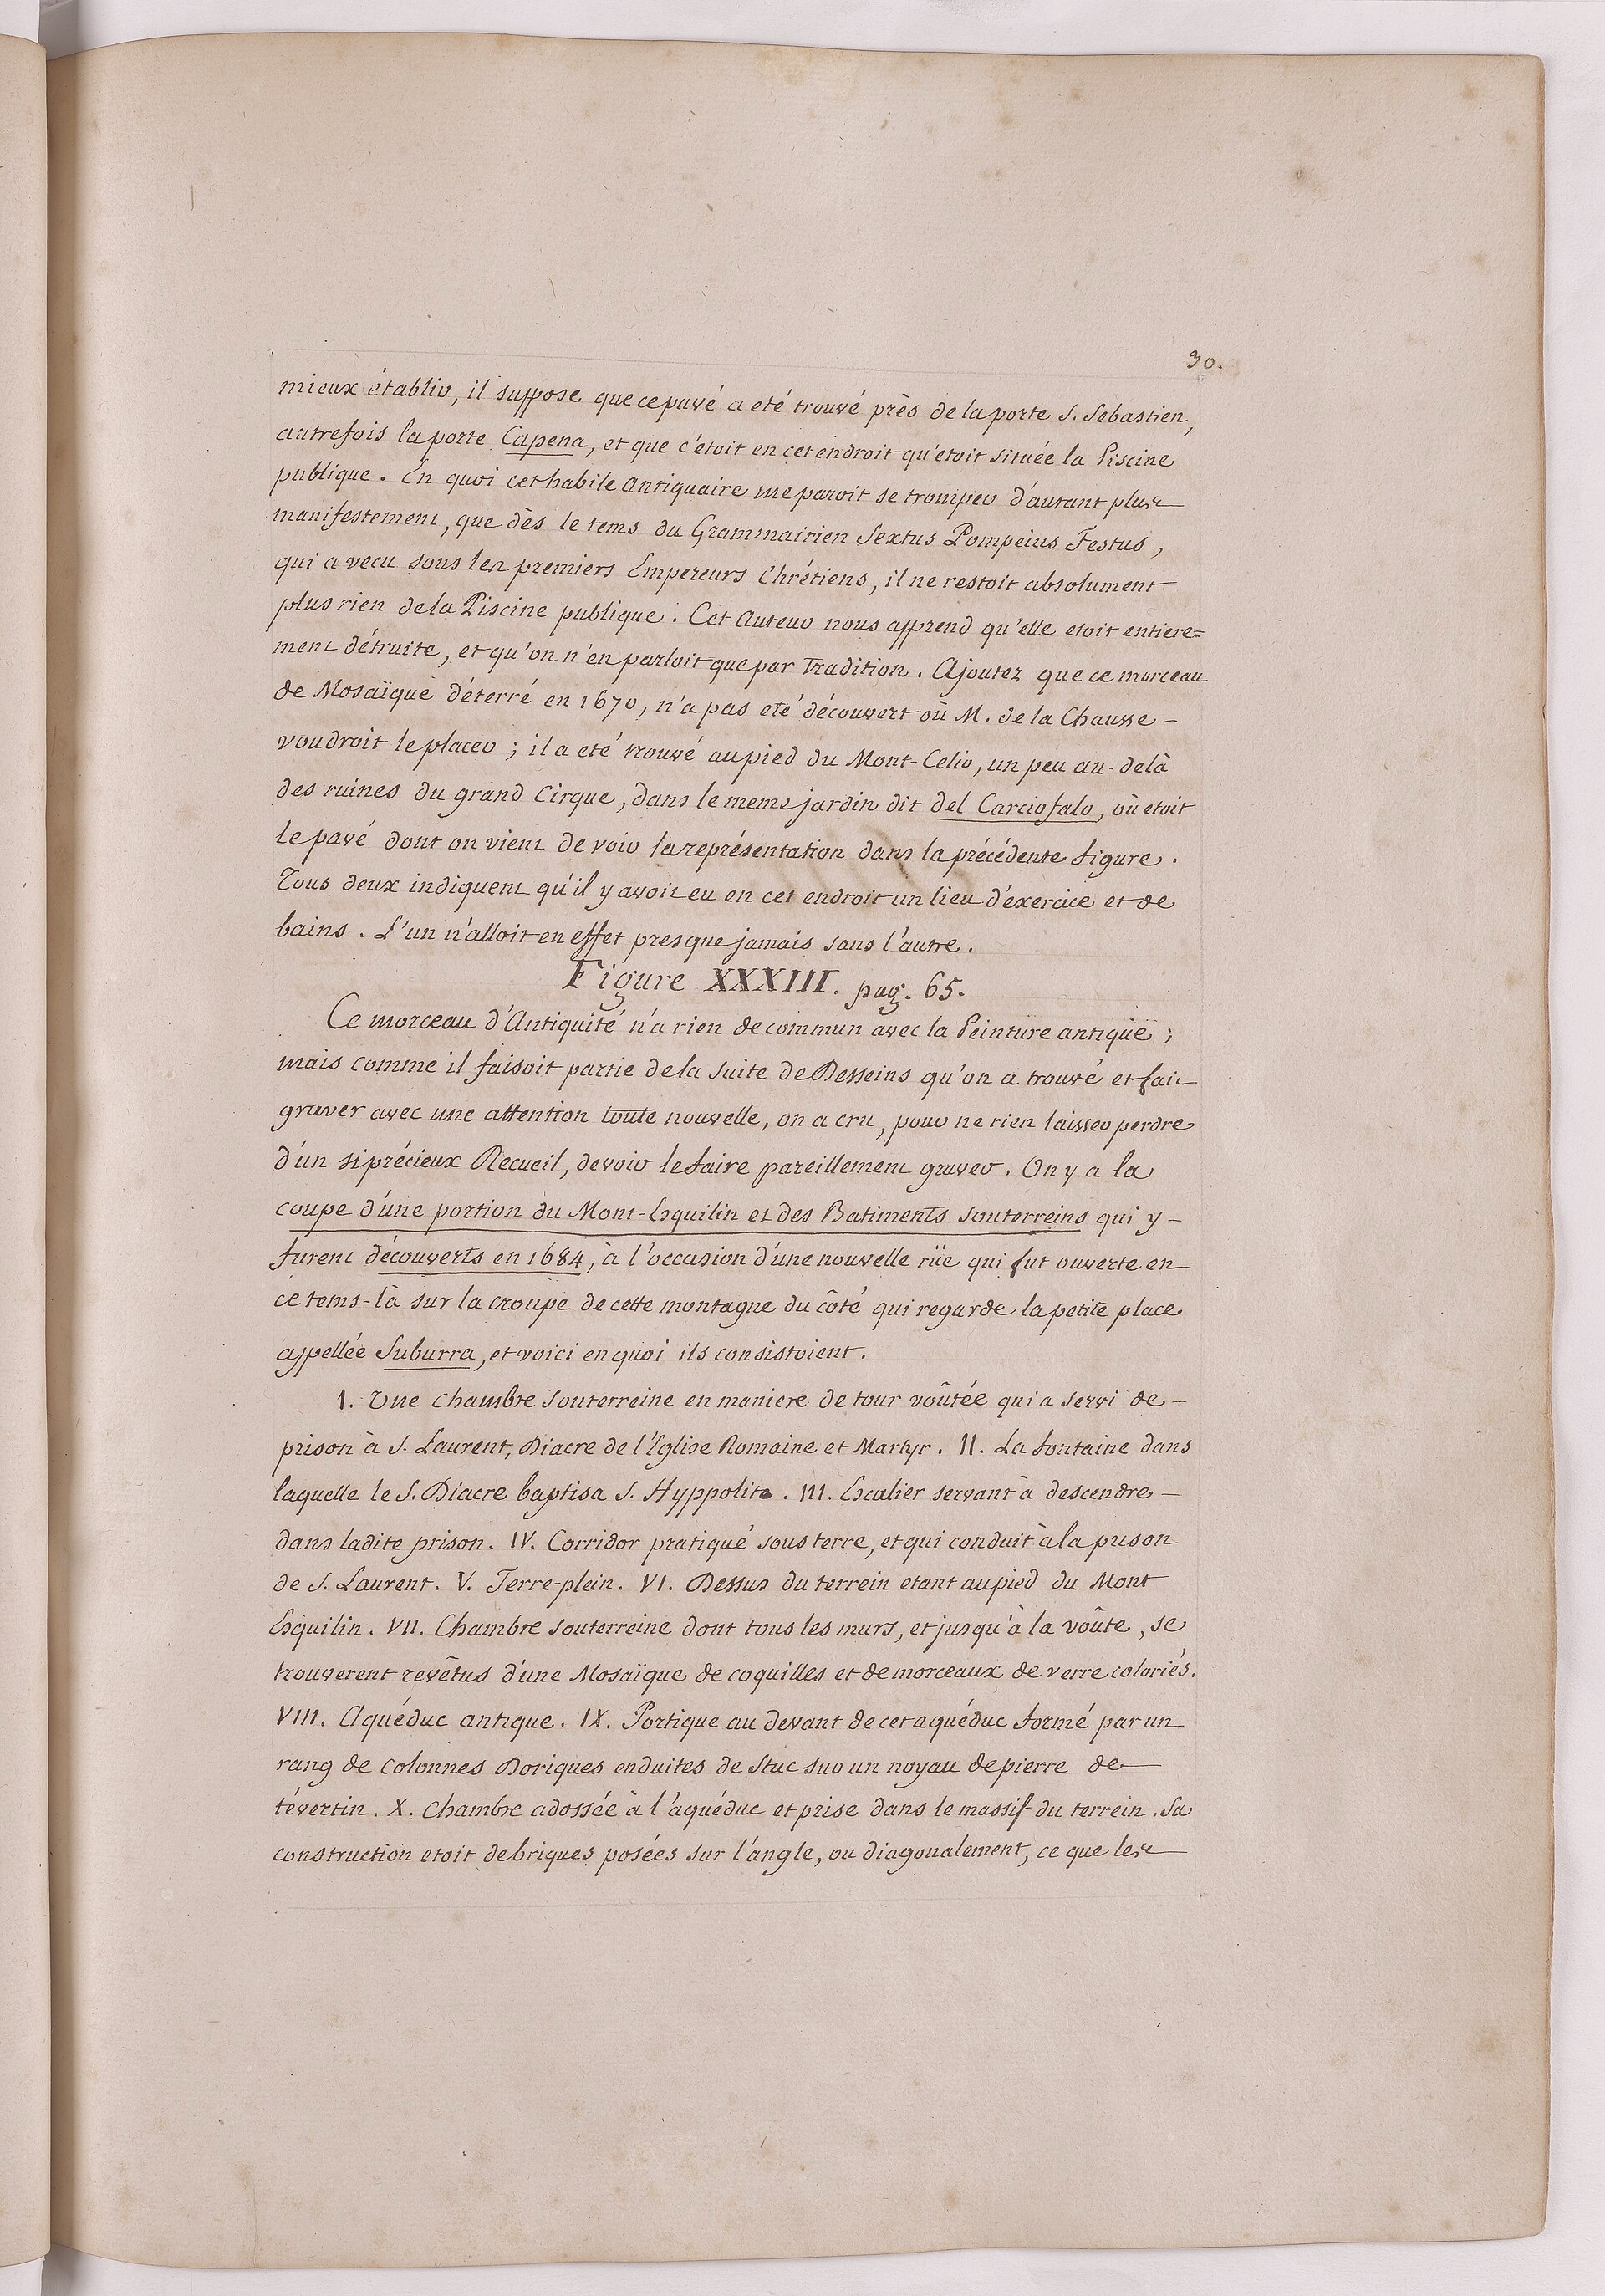 30.
mieux établir, il suppose que ce pavé a eté trouvé près de la porte S. Sébastien,
autrefois la porte Capena, et que c'étoit en cet endroit qu'étoit située la Piscine
publique. En quoi cet habile Antiquaire me paroit se tromper d'autant plus
manifestement, que dès le tems du Grammairien Sextus Pompeius Festus,
qui a vecu sous les premiers Empereurs Chrétiens, il ne restoit absolument
plus rien de la Piscine publique. Cet Auteur nous apprend qu'elle etoit entiere=
ment détruite, et qu'on n'en parloit que par Tradition. Ajoutez que ce morceau
de Mosaïque déterré en 1670, n'a pas eté découvert où M. de la Chausse -
voudroit le placer ; il a eté trouvé au pied du Mont-Celio, un peu au-delà
des ruines du grand Cirque, dans le meme jardin dit del Carciofalo, où etoit
le pavé dont on vient de voir la représentation dans la précédente figure.
Tous deux indiquent qu'il y avoit eu en cet endroit un lieu d'éxercice et de
bains. L'un n'alloit en effet presque jamais sans l'autre.
Figure XXXIII. pag. 65.
Ce morceau d'Antiquité n'a rien de commun avec la Peinture antique ;
mais comme il faisoit partie de la suite de Desseins qu'on a trouvé et fait
graver avec une attention toute nouvelle, on a cru, pour ne rien laisser perdre
d'un si précieux Recueil, devoir le faire pareillement graver. On y a la
coupe d'une portion du Mont-Esquilin et des Batiments souterreins qui y -
furent découverts en 1684, à l'occasion d'une nouvelle rüe qui fut ouverte en
ce tems-là sur la croupe de cette montagne du côté qui regarde la petite place
appellée Suburra, et voici en quoi ils consistoient.
I. Une chambre souterreine en maniere de tour voûtée qui a servi de -
prison à S. Laurent, Diacre de l'Eglise Romaine et Martyr. II. La fontaine dans
laquelle le S. Diacre baptisa S. Hyppolite. III. Escalier servant à descendre -
dans ladite prison. IV. Corridor pratiqué sous terre, et qui conduit à la prison
de S. Laurent. V. Terre-plein. VI. Dessus du terrein etant au pied du Mont
Esquilin. VII. Chambre souterreine dont tous les murs, et jusqu'à la voûte, se
trouverent revêtus d'une Mosaïque de coquilles et de morceaux de verre coloriés.
VIII. Aquéduc antique. IX. Portique au devant de cet aquéduc formé par un
rang de colonnes Doriques enduites de Stuc sur un noyau de pierre de
tévertin. X. Chambre adossée à l'aquéduc et prise dans le massif du terrein. Sa
construction etoit de briques posées sur l'angle, ou diagonalement, ce que les